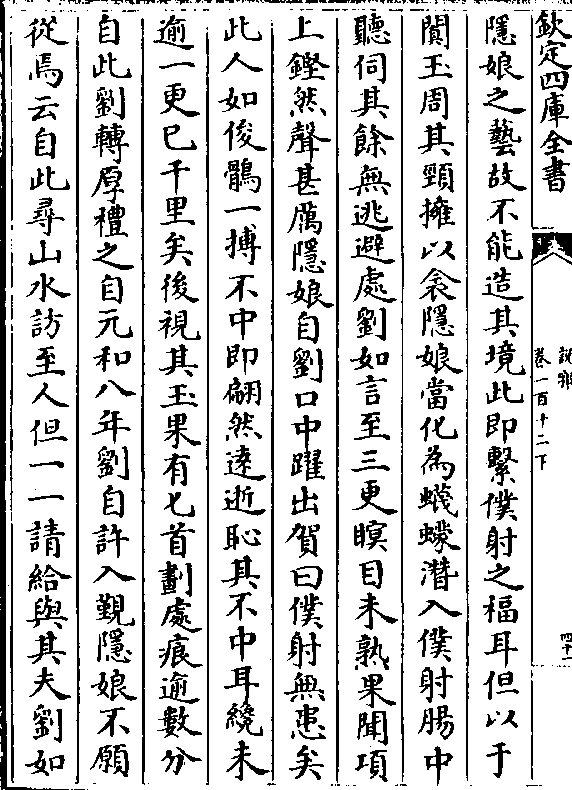 欽定四庫全書
說郛
卷一百十二下
四十一
隱娘之藝故不能造其境此即繫僕射之福耳但以于
闐玉周其頸擁以衾隱娘當化為蠛蠓潛入僕射腸中
聽伺其餘無逃避處劉如言至三更瞑目未熟果聞項
上鏗然聲甚厲隱娘自劉口中躍出賀曰僕射無患矣
此人如俊鶻一搏不中即翩然遠逝恥其不中耳纔未
逾一更已千里矣後視其玉果有匕首劃處痕逾數分
自此劉轉厚禮之自元和八年劉自許入覲隱娘不願
從焉云自此尋山水訪至人但一一請給與其夫劉如